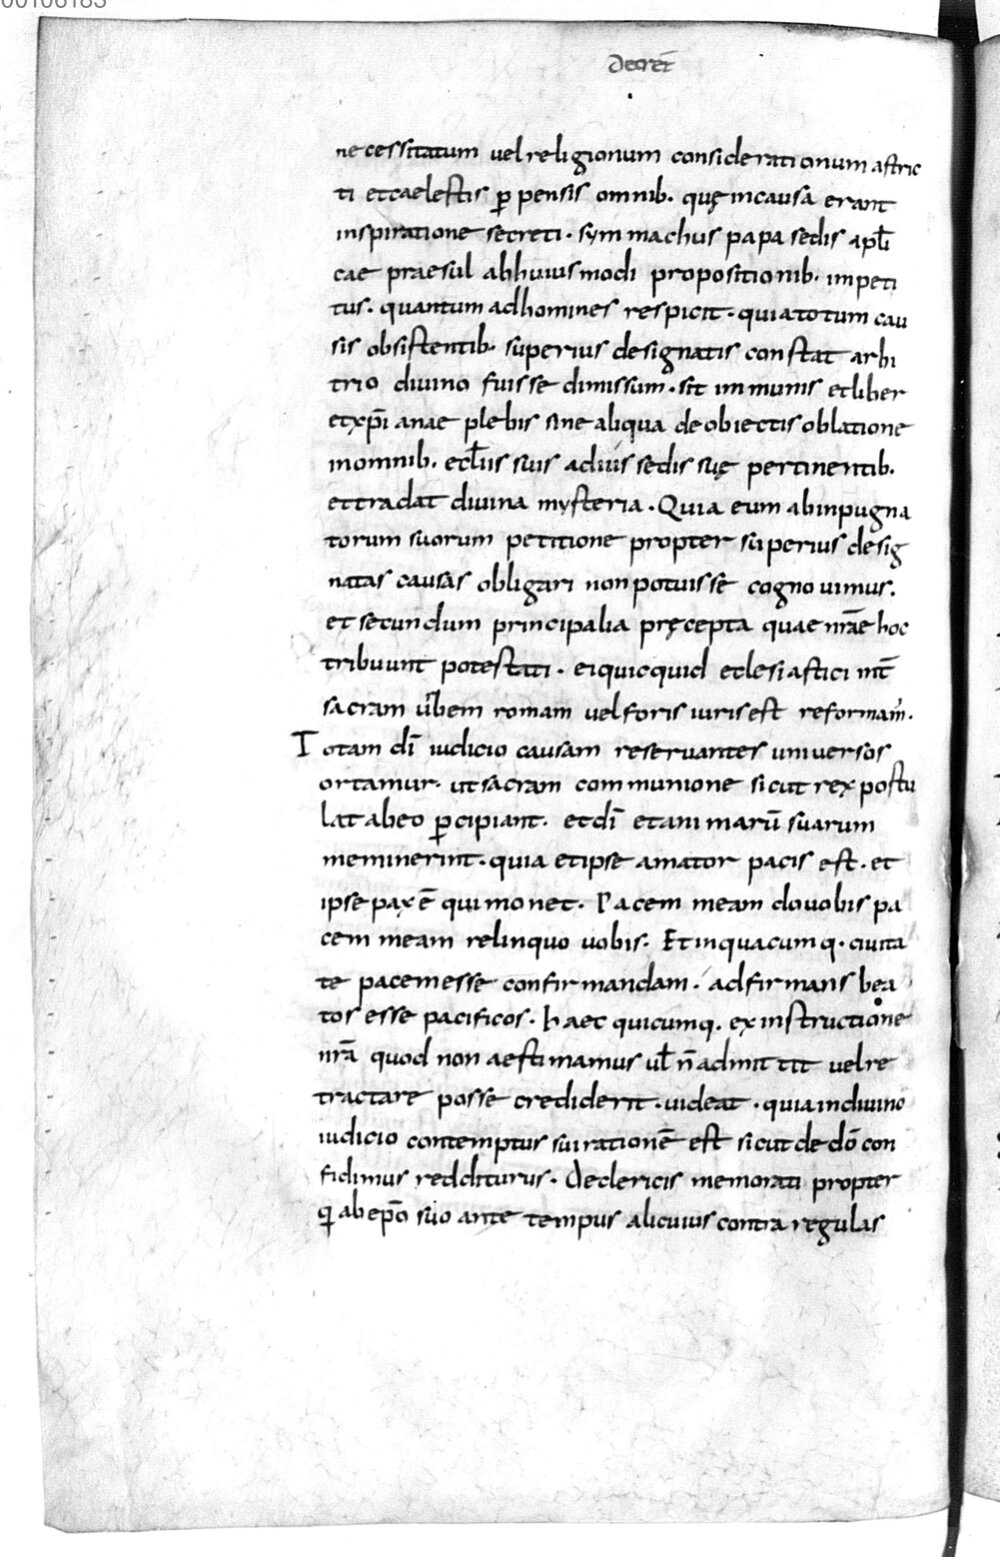 00106183
Decret̄
necessitatum vel religionum considerationum astric
ti et caelestis p̲ pensis omnib. quę in causa erant
inspiratione secreti. symmachus papa sedis apl̄i
cae praesul ab huiusmodi propositionib. impeti
tus. quantum ad homines respicit. quia totum cau
sis obsistentib. superius designatis constat arbi
trio divino fuisse dimissum. sit immunis et liber
et xp̄i anae plebis sine aliqua de obiectis oblatione
in omnib. eccl̄iis suis ad ius sedis suę pertinentib.
et tradat divina mysteria. Quia eum ab inpugna
torum suorum petitione propter superius desig
natas causas obligari non potuisse cognovimus.
et secundum principalia pręcepta quae nr̄ae hoc
tribuunt potestati. ei quicquid eclesiastici int̄
sacram urbem romam vel foris iuris est reformam̄.
Totam dī iudicio causam reservantes universos
ortamur. ut sacram communione sicut rex postu
lat ab eo p̲cipiant. et dī et animarū suarum
meminerint. quia et ipse amator pacis est. et
ipse pax ē qui monet. Pacem meam do vobis pa
cem meam relinquo vobis. Et in quacumq. civita
te pacem esse confirmandam. adfirmans bea
tos esse pacificos. haec quicumq. ex instructione
nr̄a quod non aestimamus vl̄ n̄ admittit vel re
tractare posse crediderit. videat. quia in divino
iudicio contemptus sui rationē est sicut de dō con
fidimus redditurus. De clericis memorati propter
q̄ ab ep̄o suo ante tempus alicuius contra regulas